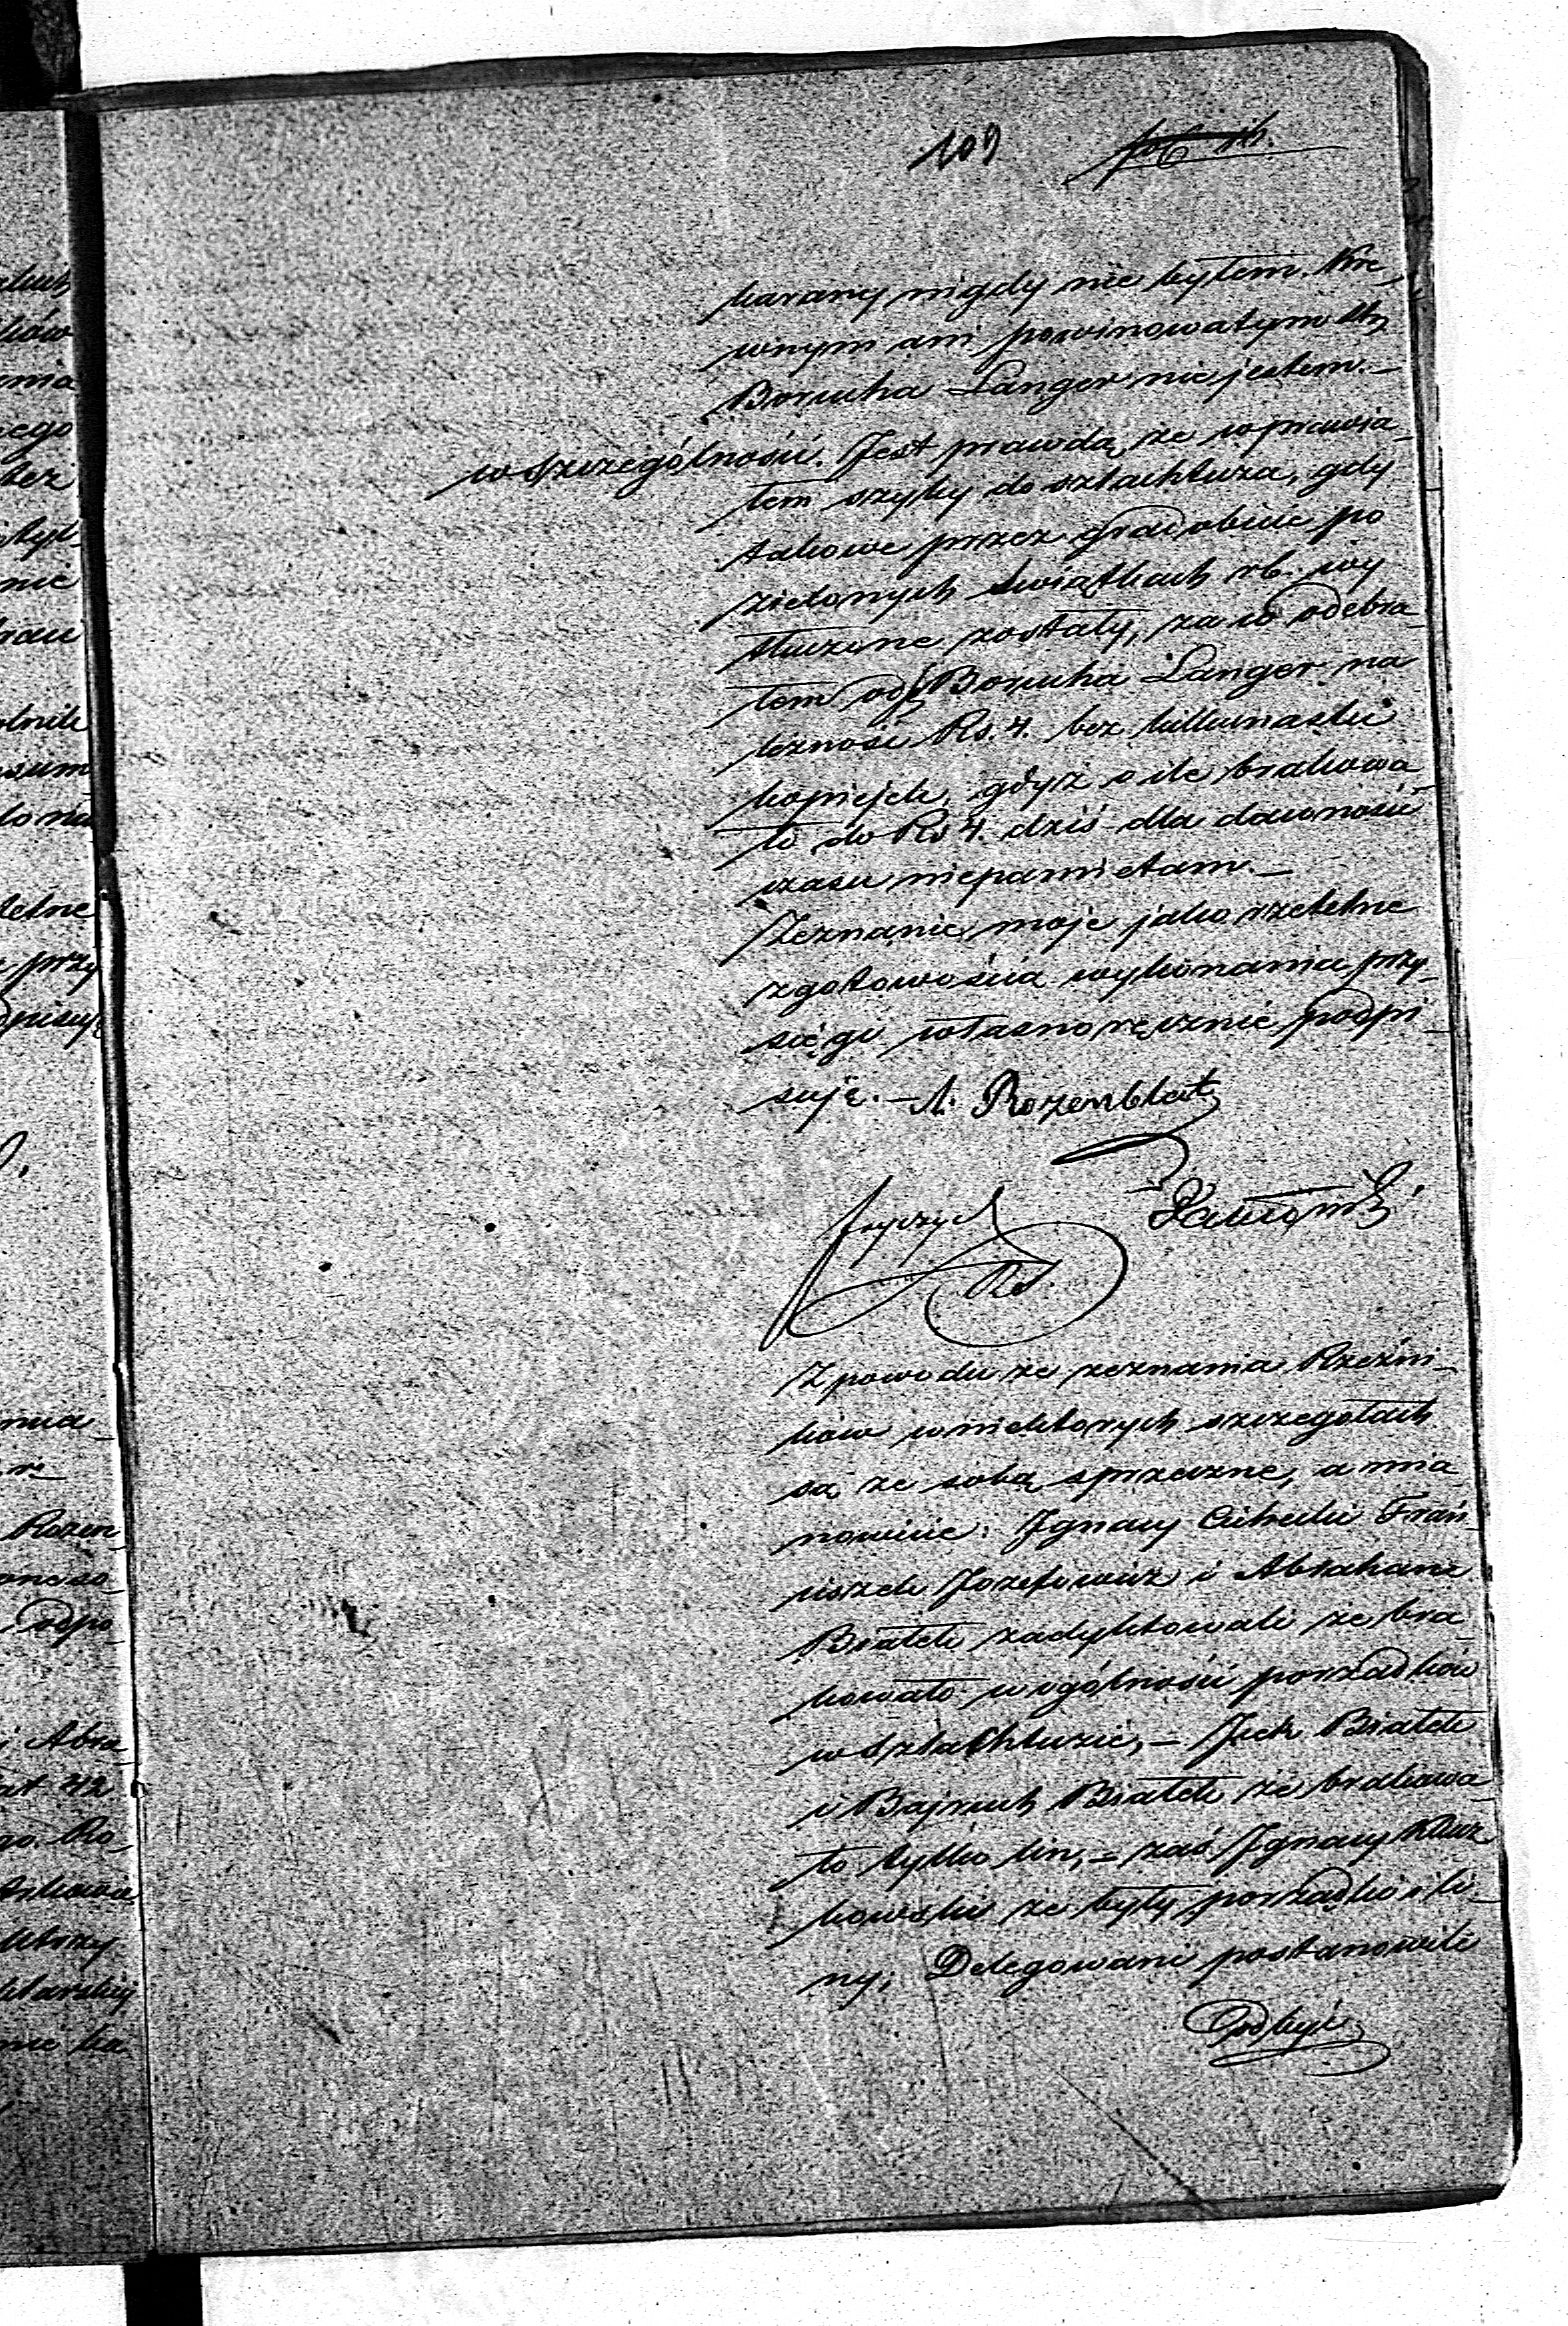 109
karany nigdy nie byłem. Kre-
wnym ani powinowatym
Borucha Langer nie jestem. —
w szczególności. Jest prawdą, że wprawia-
łem szyby do szlachtuza, gdy
takowe przez gradobicie po
zielonych świątkach rb. wy
tłuczone zostały, za co odebra-
łem od Borucha Langer na
leżność Rs. 4. bez kilkunastu
kopiejek, gdyż o ile brakowa-
ło do Rs 4. dziś dla dawności
czasu niepamiętam. —
Zeznanie moje jako rzetelne
z gotowością wykonania przy-
sięgi własnoręcznie podpi-
suję. — A. Rozenblat
Z powodu że zeznania Rzeźni-
ków w niektórych szczegółach
są ze sobą sprzeczne, a mia
nowicie: Ignacy Cichecki Fran-
ciszek Józefowicz i Abraham
Białek zadyktowali że bra-
kowało w ogólności porządków
w szlachtuzie, — Icek Białek
i Bajnuch Białek że brakowa-
ło tylko lin, — zaś Ignacy
kowski że były porządki i li-
ny; Delegowani postanowili